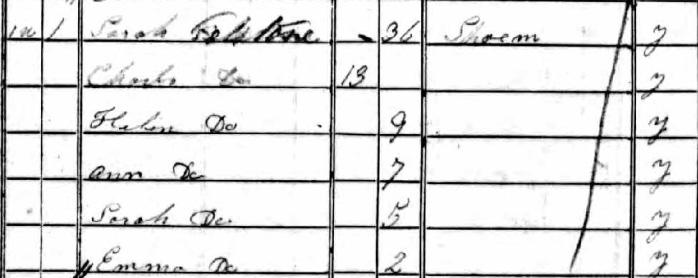 1 Sarah Felstone 36 Shoem y
Charles Do 13 y
Helen Do 9 y
Ann Do 7 y
Sarah Do 5 y
Emma Do 2 y